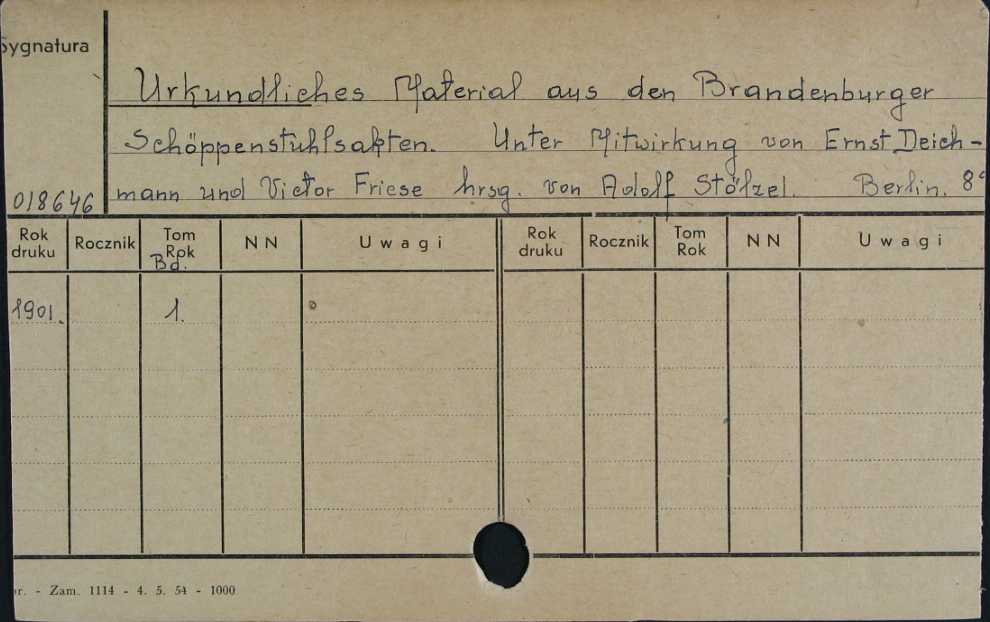 Sygnatura
Urkundliches Material aus den Brandenburger
Schöppenstuhlsakten. Unter Mitwirkung von Ernst Deich-
018646 mann und Victor Friese hrsg. von Adolf Stölzel. Berlin. 8°
Rok druku Rocznik Tom Rok Bd. NN Uwagi Rok druku Rocznik Tom Rok NN Uwagi
1901. 1.
- Zam. 1114 - 4. 5. 54 - 1000